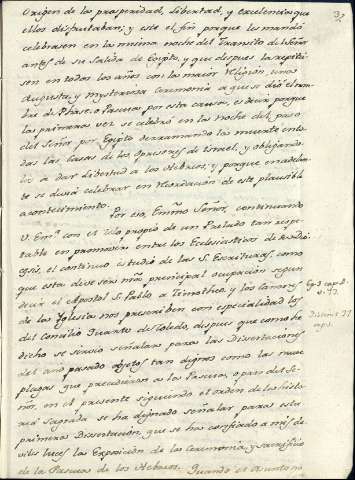 Origen de la prosperidad, libertad, y excelencias que
ellos disfrutaban; y este el fin porque les mandó
celebrasen en la misma noche del Transito del Señor
antes de su salida de Egipto, y que despues la repiti-
sen en todos los años con la maior Religion, una
Augusta, y mysteriosa Ceremonia a que se dió el nom-
bre de Phase, o Pascua por esta causa, es decir porque
la primera vez se celebró en la noche del paso
del Señor por Egipto derramando la muerte en to-
das las Casas de los Opresores de Israel, y obligando-
les a dar libertad a los Hebreos, y porque en adelan-
te se devia celebrar en recordacion de este plausible
acontecimiento.
Por eso, Emmo Señor, continuando
V. Emª con el zelo propio de un Prelado tan respe-
table en promover entre los Eclesiasticos de su dio-
cesis, el continuo estudio de las S. Escrituras, como
que esta deve ser ntra principal ocupacion segun
decia el Apostol S. Pablo a Timotheo, y los Canones
de la Yglesia nos prescriben con especialidad los
del Concilio Quarto de Toledo, despues que como he
dicho se sirvio señalar para las Disertaciones
del año pasado objetos tan dignos como las nueve
plagas que precedieron a la Pascua, o paso del Se-
ñor, en el presente siguiendo el orden de la histo-
ria Sagrada se ha dignado señalar para esta
primera Dissertacion, que se ha confiado a mis de-
viles luces la Exposicion de la Ceremonia, y sacrificio
de la Pascua de los Hebreos. Quando el Asunto no